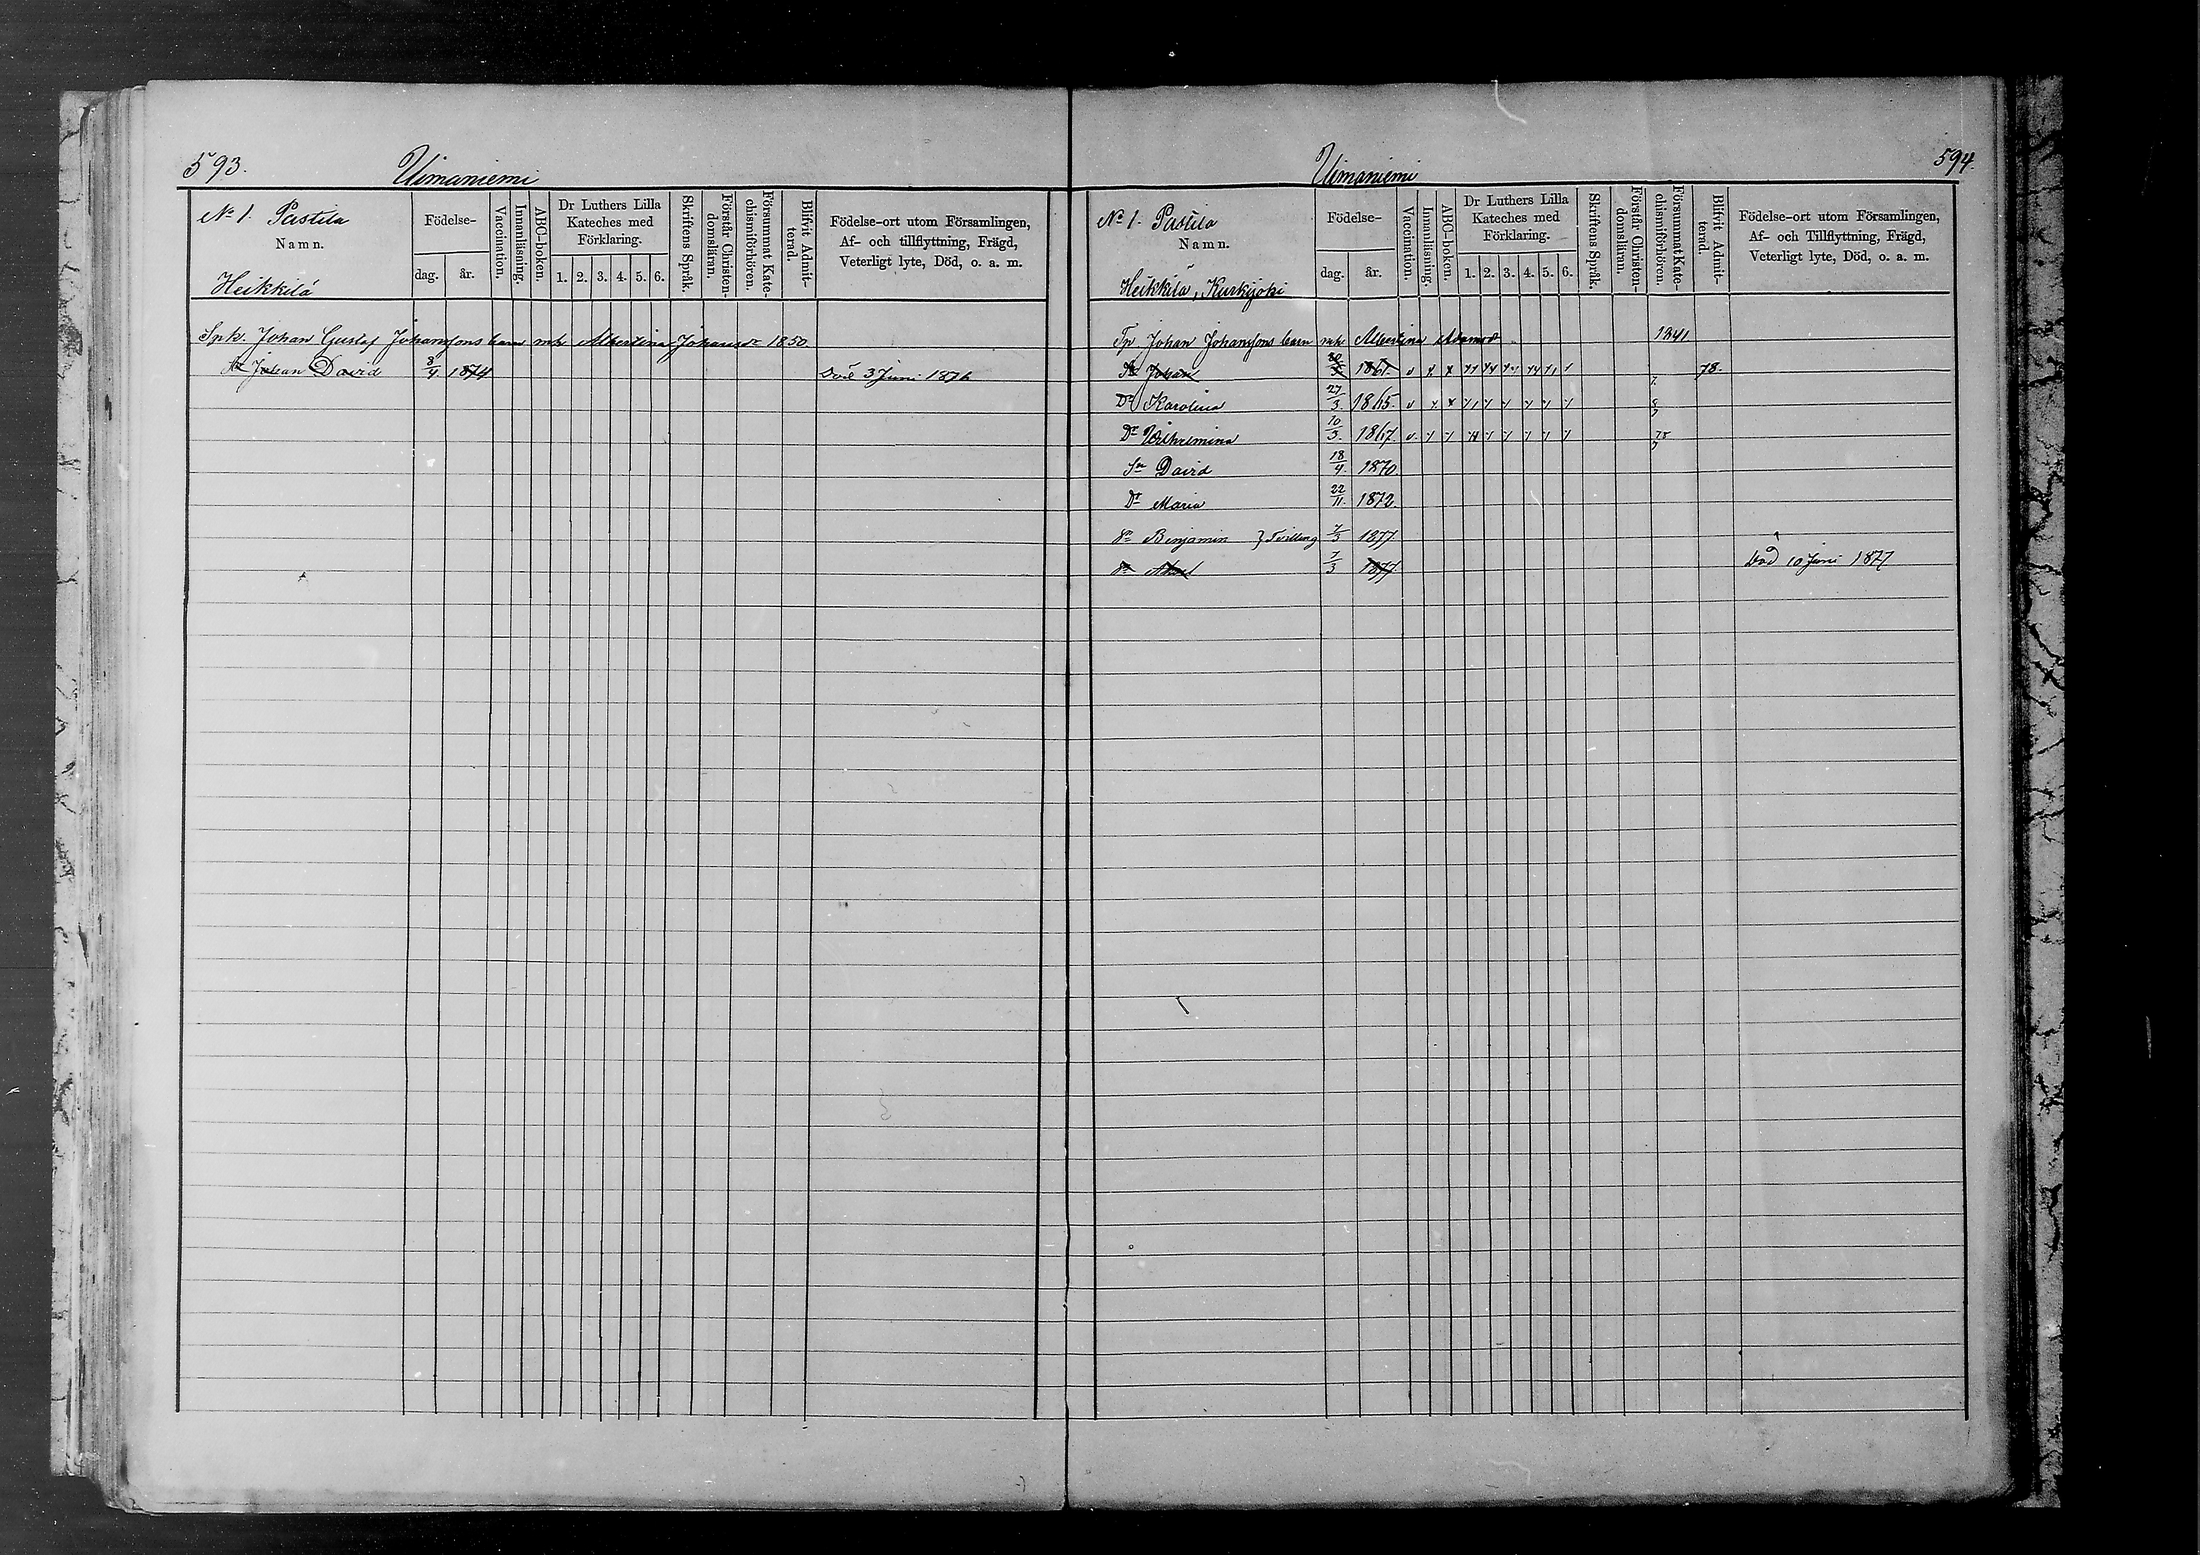 593.
Uimaniemi
No 1. Pastila
Namn.
Heikkilä
Födelse-
dag.
år.
Vaccination.
Innanläsning.
ABC-boken.
Dr Luthers Lilla
Kateches med
Förklaring.
1. 2. 3. 4. 5. 6.
Skriftens Språk.
Förstår Christen-
domsläran.
Försummat Kate-
chismiförhören.
Blifvit Admit-
terad.
Födelse-ort utom Församlingen,
Af- och tillflyttning, Frägd,
Veterligt lyte, Död, o. a. m.
Johan Gustaf Johanssons barn mh Albertina Johansdr 1850
Sn Johan David 8/4. 1874 3 Juni 1876
594.
Uimaniemi
No 1. Pastila
Namn.
Heikkilä, Kurkijoki
Födelse-
dag.
år.
Vaccination.
Innanläsning.
ABC-boken.
Dr Luthers Lilla
Kateches med
Förklaring.
1. 2. 3. 4. 5. 6.
Skriftens Språk.
Förstår Christen-
domsläran.
Försummat Kate-
chismiförhören.
Blifvit Admit-
terad.
Födelse-ort utom Församlingen,
Af- och Tillflyttning, Frägd,
Veterligt lyte, Död, o. a. m.
Tp Johan Johanssons barn mh Albertina 1841
Sn Johan 1861. 78.
Dr Karolina 27/3. 1865.
Dr Wilhelmina 10/3. 1867.
Sn David 18/4. 1870.
Dr Maria 22/11. 1872.
Sn Benjamin } Tvilling 7/3 1877.
Sn 7/3 1877. Död 10 Juni 1877